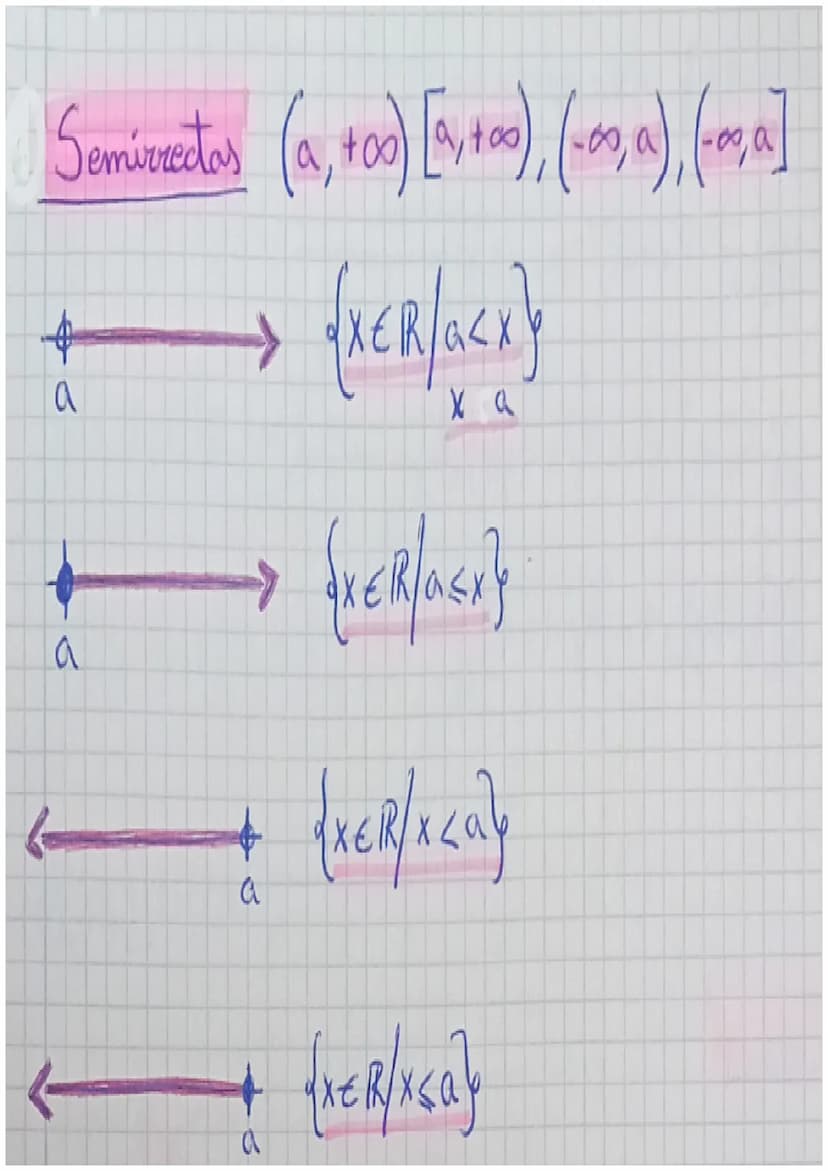 Semirrectas (a, +∞) [a, +∞), (-∞, a), (-∞, a]
{x ∈ ℝ / a < x}
a
x a
{x ∈ ℝ / a ≤ x}
a
{x ∈ ℝ / x < a}
a
{x ∈ ℝ / x ≤ a}
a